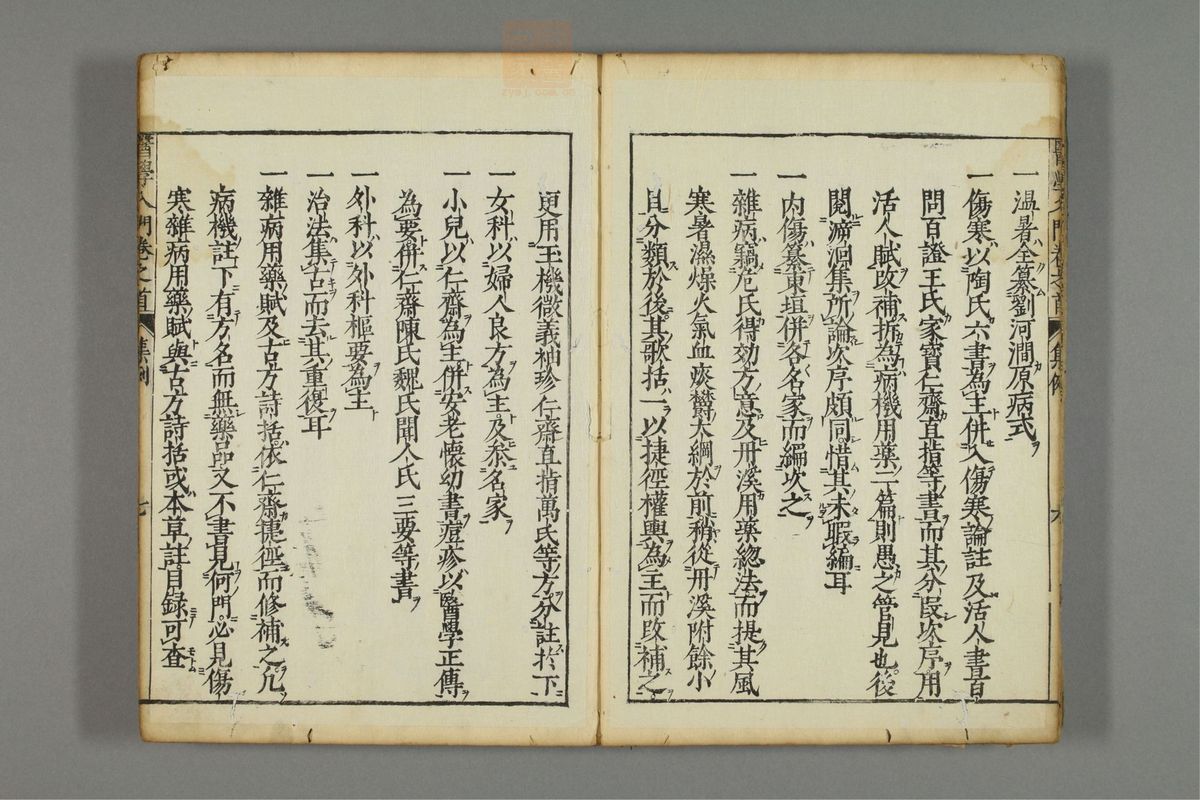 一温暑全纂劉河澗原病式
一傷寒以陶氏六書為主併入傷寒論註及活人書百
問百證王氏家寶仁齋直指等書而其分段次序用
活人賦改補拆為病機用薬一篇則愚之管見也後
閱溯洄集所論次序頗同惜其未暇編耳
一内傷纂東垣併各名家而編次之
一雜病竊危氏得効方意及丹溪用薬緫法而提其風
寒暑濕燥火氣血痰欝大綱於前稍從丹溪附餘小
目分類於後其歌括一以捷徑權輿為主而改補之
更用玉機微義袖珍仁齋直指萬氏等方分註於下
一女科以婦人良方為主及叅名家
一小兒以仁齋為主併安老懷幼書痘疹以醫學正傳
為要併仁齋陳氏魏氏聞人氏三要等書
一外科以外科樞要為主
一治法集古而去其重復耳
一雜病用薬賦及古方詩括依仁齋捷徑而修補之凢
病機註下有方名而無薬品又不書見何門必見傷
寒雜病用薬賦與古方詩括或本草註目録可查
醫學入門卷之首
集例
七